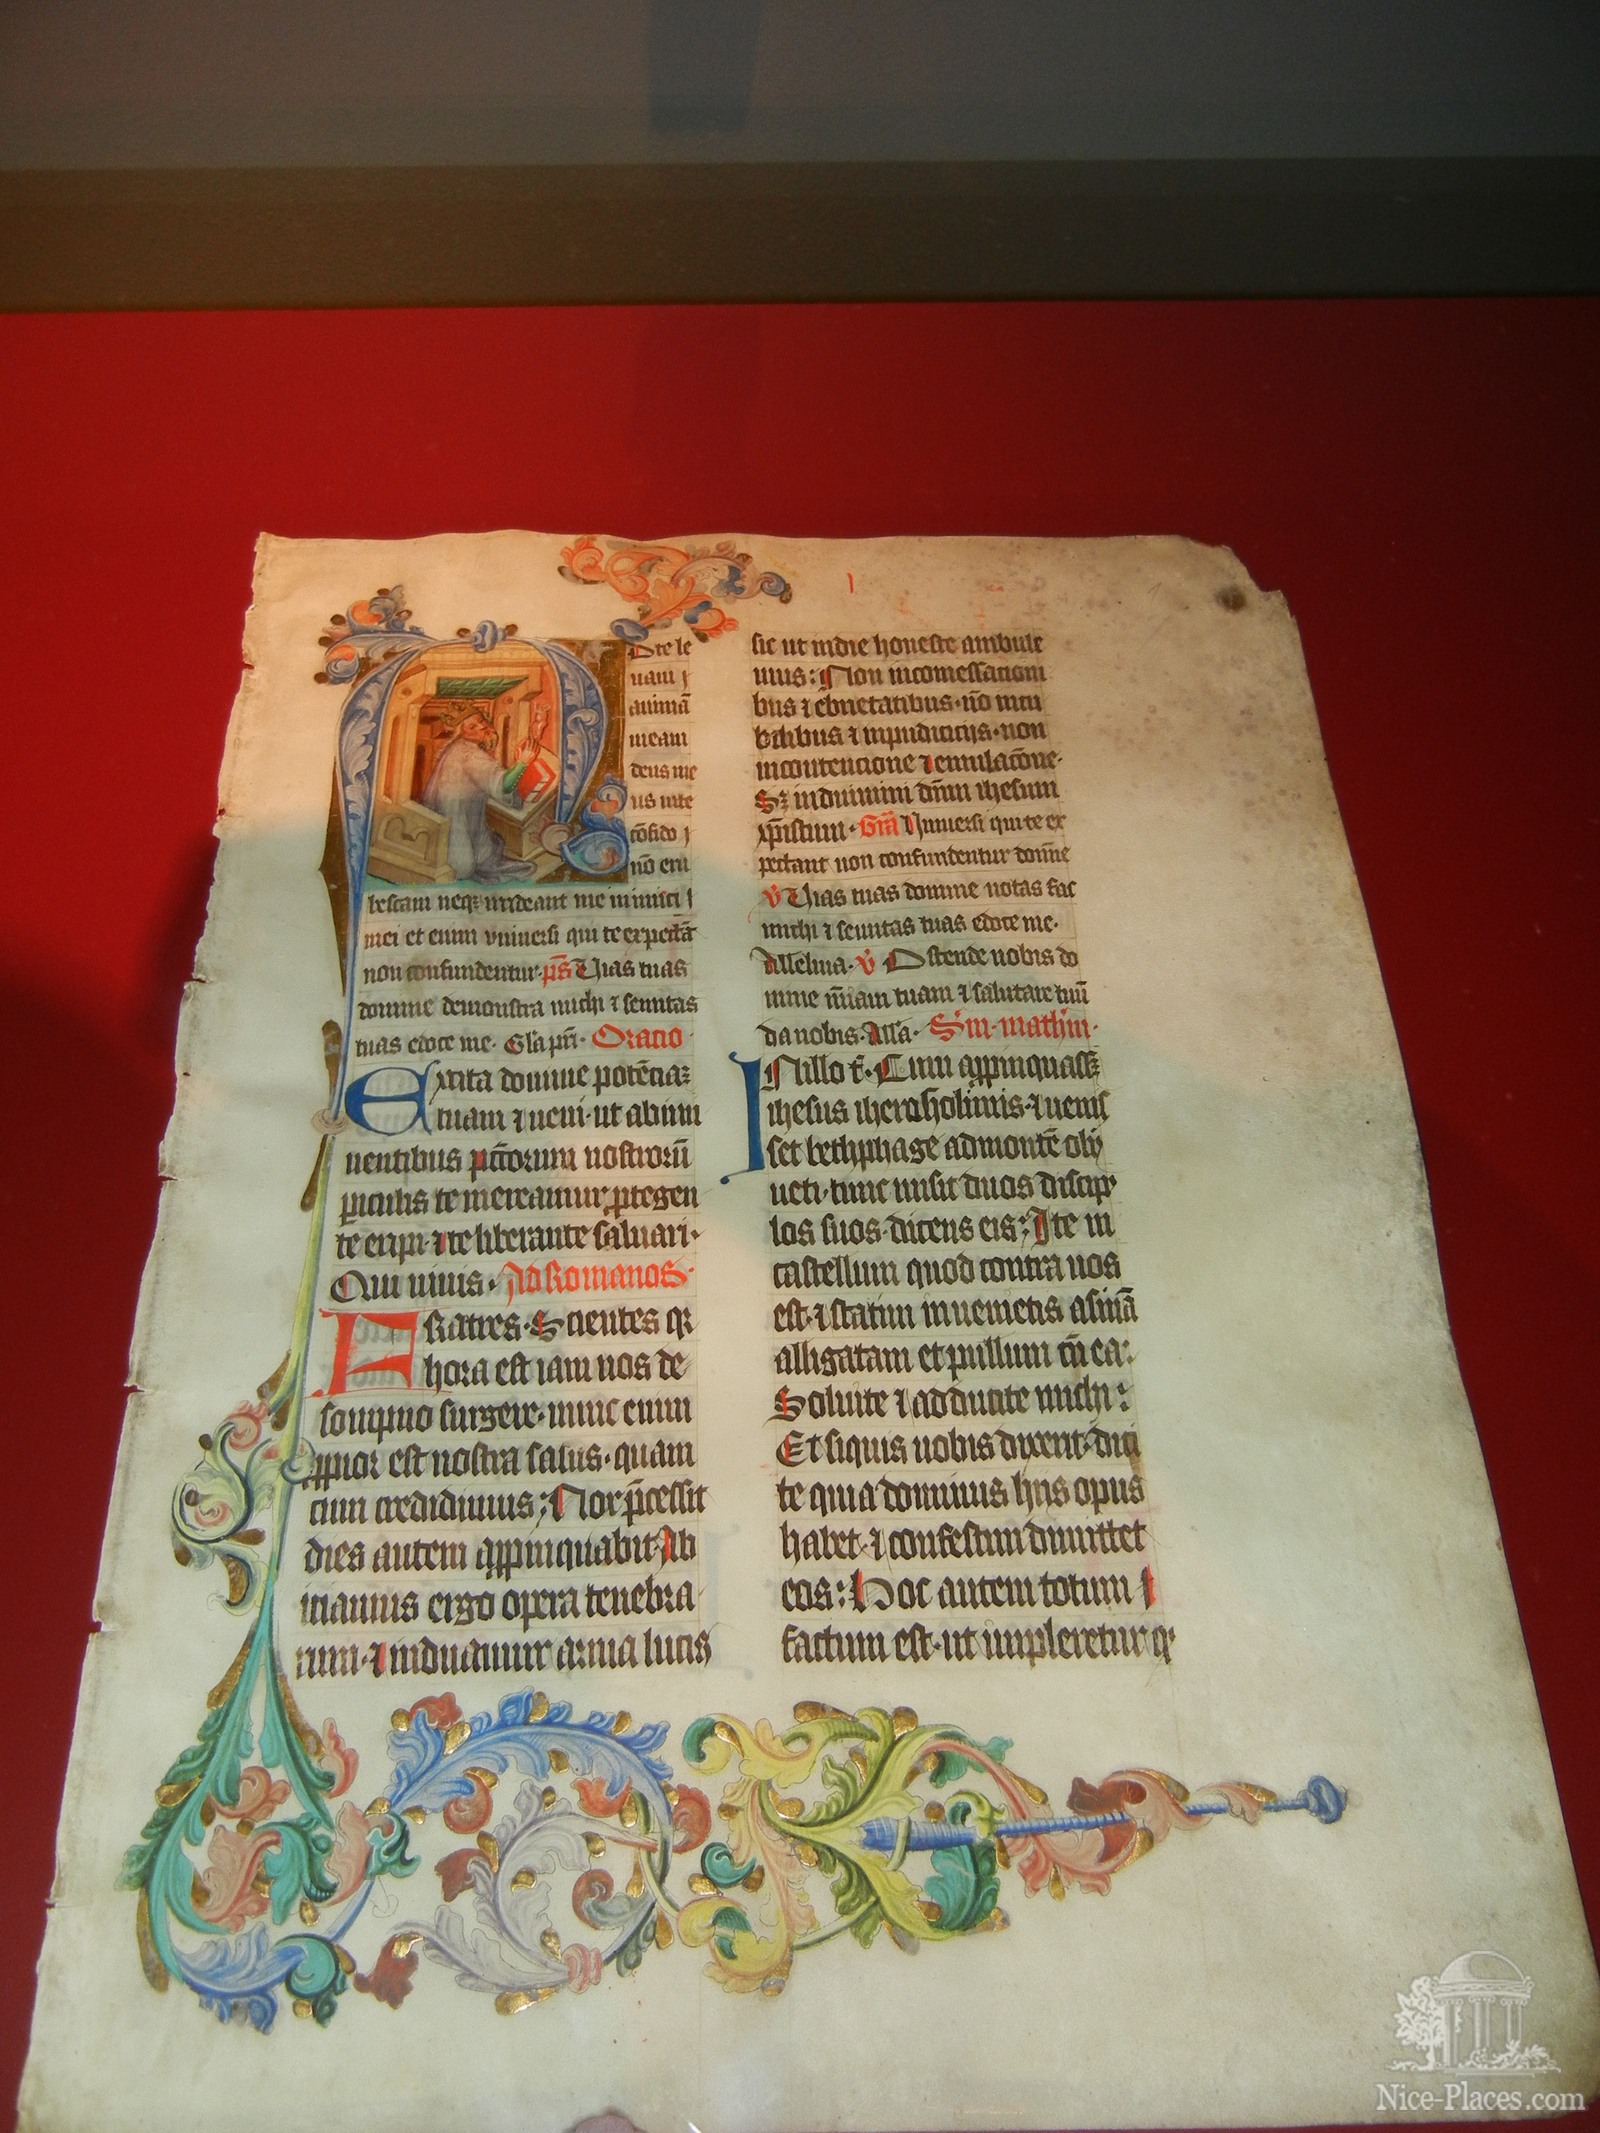 A Dte le
uam i
animā
meam
deus me
us in te
cōfido i
nō eru
bescam neqz irrideant me inimici
mei et enim vniuersi qui te expectāt
non confundentur. ps Uias tuas
domine demonstra michi ⁊ semitas
tuas edoce me. Gla pri. Oracio.
Excita domine potēciaz
tuam ⁊ ueni. ut ab imi
nentibus pctorum nostrorū
piculis te mereamur ptegen
te eripi. ⁊ te liberante saluari.
Qui uiuis. Ad Romanos.
FRatres. Scientes qr
hora est iam nos de
sompno surgere. nunc enim
ppior est nostra salus. quam
cum credidimus: Nox pcessit
dies autem appinquabit. Ab
iciamus ergo opera tenebra
rum. ⁊ induamur arma lucis
sic ut in die honeste ambule
mus: Non in comessacioni
bus ⁊ ebrietatibus. nō in cu
bilibus ⁊ inpudicicijs. non
in contencione ⁊ emulacōne.
Sz induimini dnm ihesum
xpistum. Gra Uniuersi qui te ex
pectant non confundentur domīe
v Uias tuas domine notas fac
michi ⁊ semitas tuas edoce me.
Alleluia. v Ostende nobis do
mine mīam tuam ⁊ salutare tuū
da nobis. Alla. Sm. mathm.
IN illo t. Cum appinquassz
ihesus iherosolimis. ⁊ uenis
set bethphage ad montē oly
ueti. tunc misit duos discip
los suos. dicens eis: Ite in
castellum quod contra uos
est. ⁊ statim inuenietis asinā
alligatam et pullum cū ea:
Soluite ⁊ adducite michi:
Et siquis uobis dixerit. dici
te quia dominus hiis opus
habet. ⁊ confestim dimittet
eos: Hoc autem totum
factum est. ut impleretur qr
Nice-Places.com